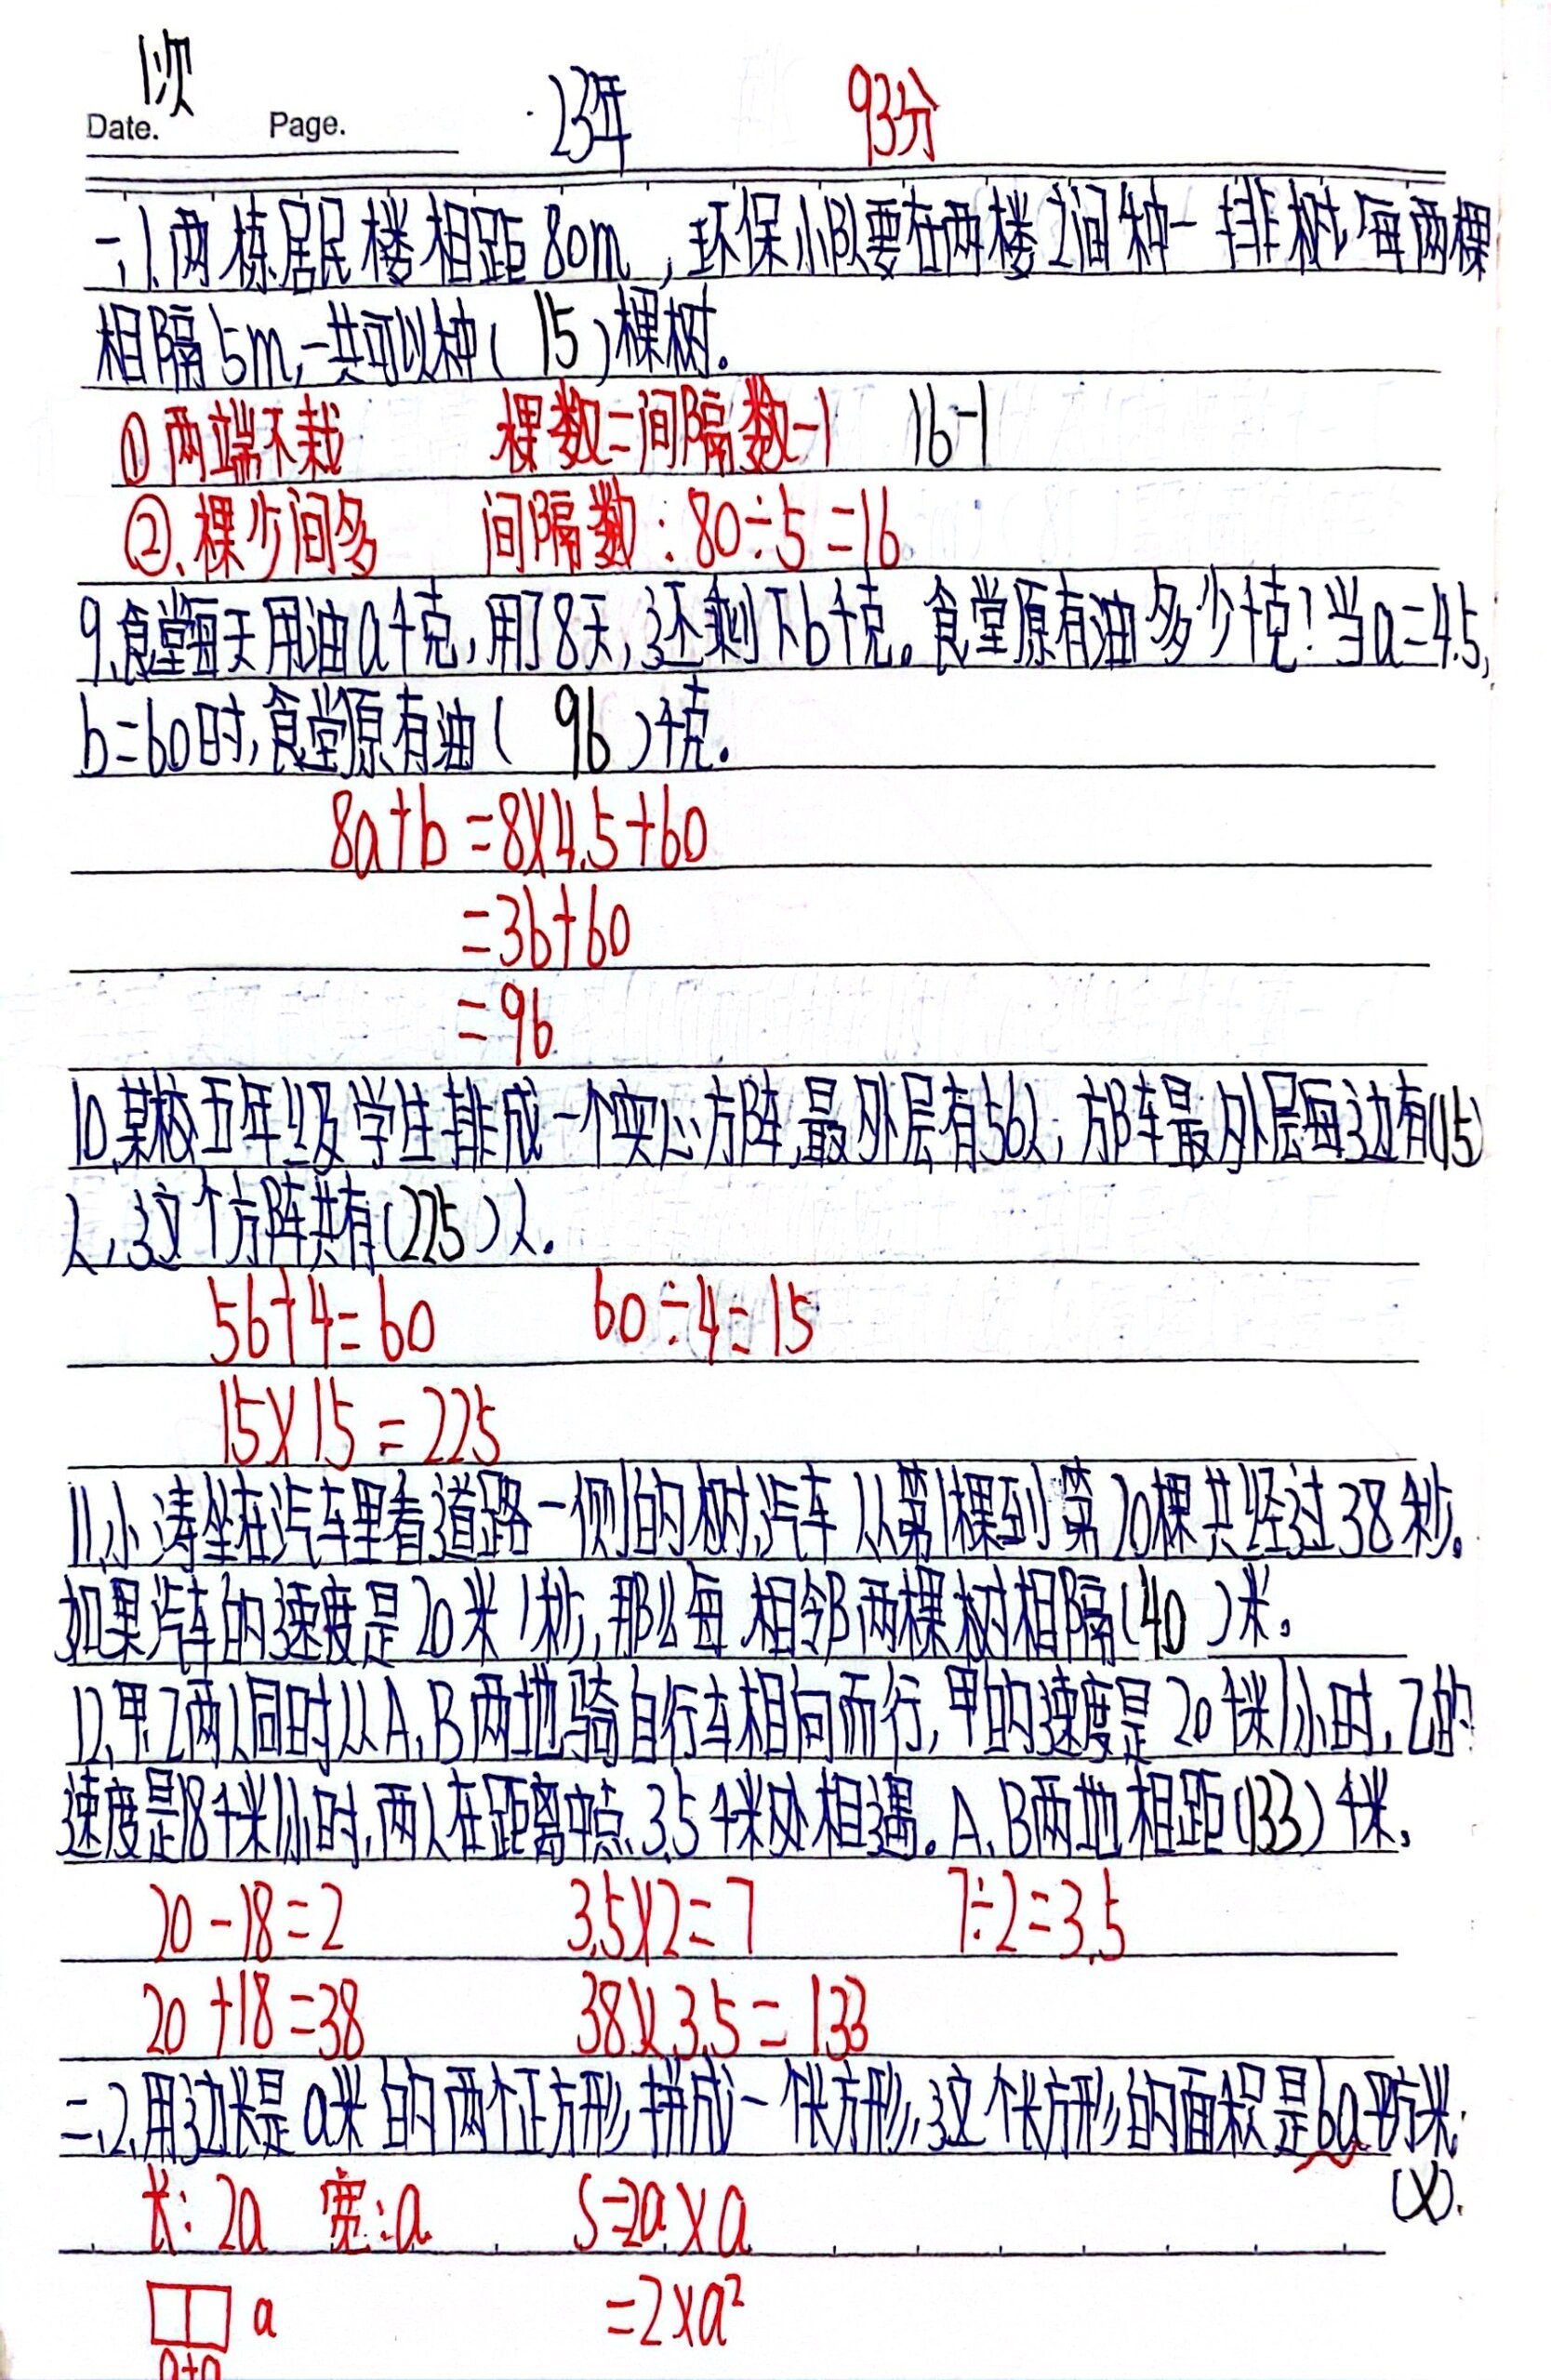 1次
Date. Page. 23年 93分
一、1.两栋居民楼相距80m,环保小队要在两楼之间种一排树,每两棵
相隔5m,一共可以种(15)棵树。
①两端不栽 棵数=间隔数-1 16-1
②、棵少间多 间隔数:80÷5=16
9.食堂每天用油a千克,用了8天,还剩下b千克。食堂原有油多少千克?当a=4.5,
b=60时,食堂原有油(96)千克。
8a+b=8×4.5+60
=36+60
=96
10.某校五年级学生排成一个实心方阵,最外层有56人,方阵最外层每边有(15)
人,这个方阵共有(225)人.
56+4=60 60÷4=15
15×15=225
11.小涛坐在汽车里看道路一侧的树,汽车从第1棵到第20棵共经过38秒。
如果汽车的速度是20米/秒,那么每相邻两棵树相隔(40)米。
12.甲乙两人同时从A、B两地骑自行车相向而行,甲的速度是20千米/小时,乙的
速度是18千米/小时,两人在距离中点3.5千米处相遇。A、B两地相距(133)千米。
20-18=2 3.5×2=7 7÷2=3.5
20+18=38 38×3.5=133
二、2.用边长是a米的两个正方形,拼成一个长方形,这个长方形的面积是6a平方米.
(×).
长:2a 宽:a S=2a×a
a =2×a²
a+a